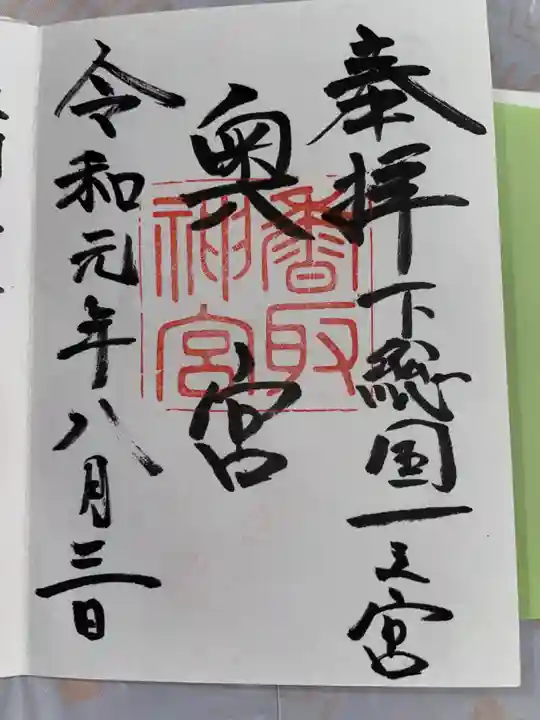 奉拝 下総国一之宮
奥宮
香取神宮
令和元年八月三日